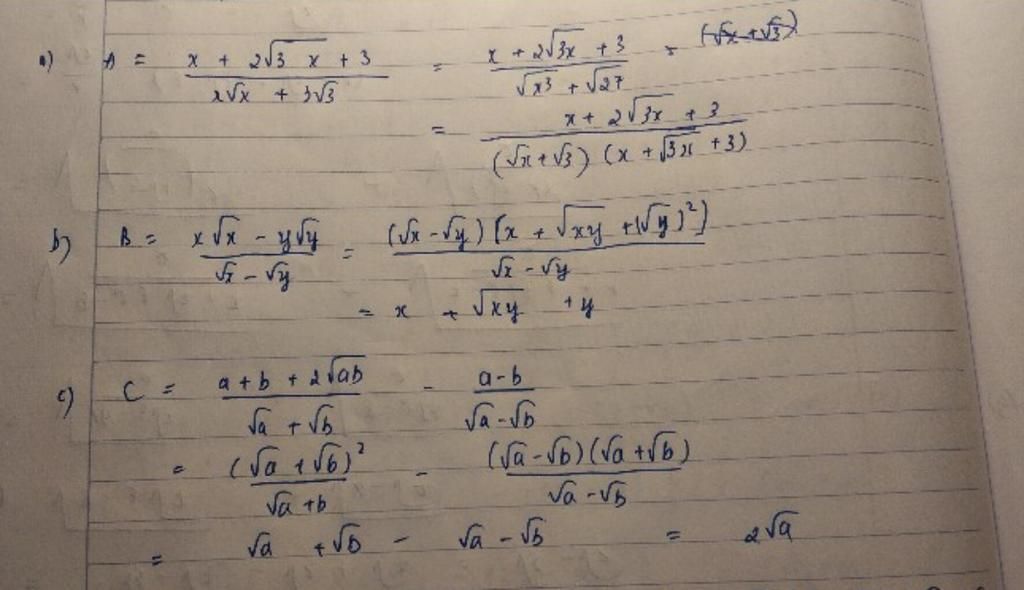 a) A = (x + 2√(3x) + 3)/(x√x + 3√3) = (x + 2√(3x) + 3)/(√(x3) + √27) = (√x + √3)
= (x + 2√(3x) + 3)/((√x + √3) (x + √(3x) + 3)
b) B = (x√x - y√y)/(√x - √y) = ((√x - √y) [x + √(xy) + (√y)²])/(√x - √y)
= x + √(xy) + y
c) C = (a + b + 2√(ab))/(√a + √b) - (a - b)/(√a - √b)
= (√a + √b)²/(√a + b) - ((√a - √b)(√a + √b))/(√a - √b)
= √a + √b - √a - √b = 2√a